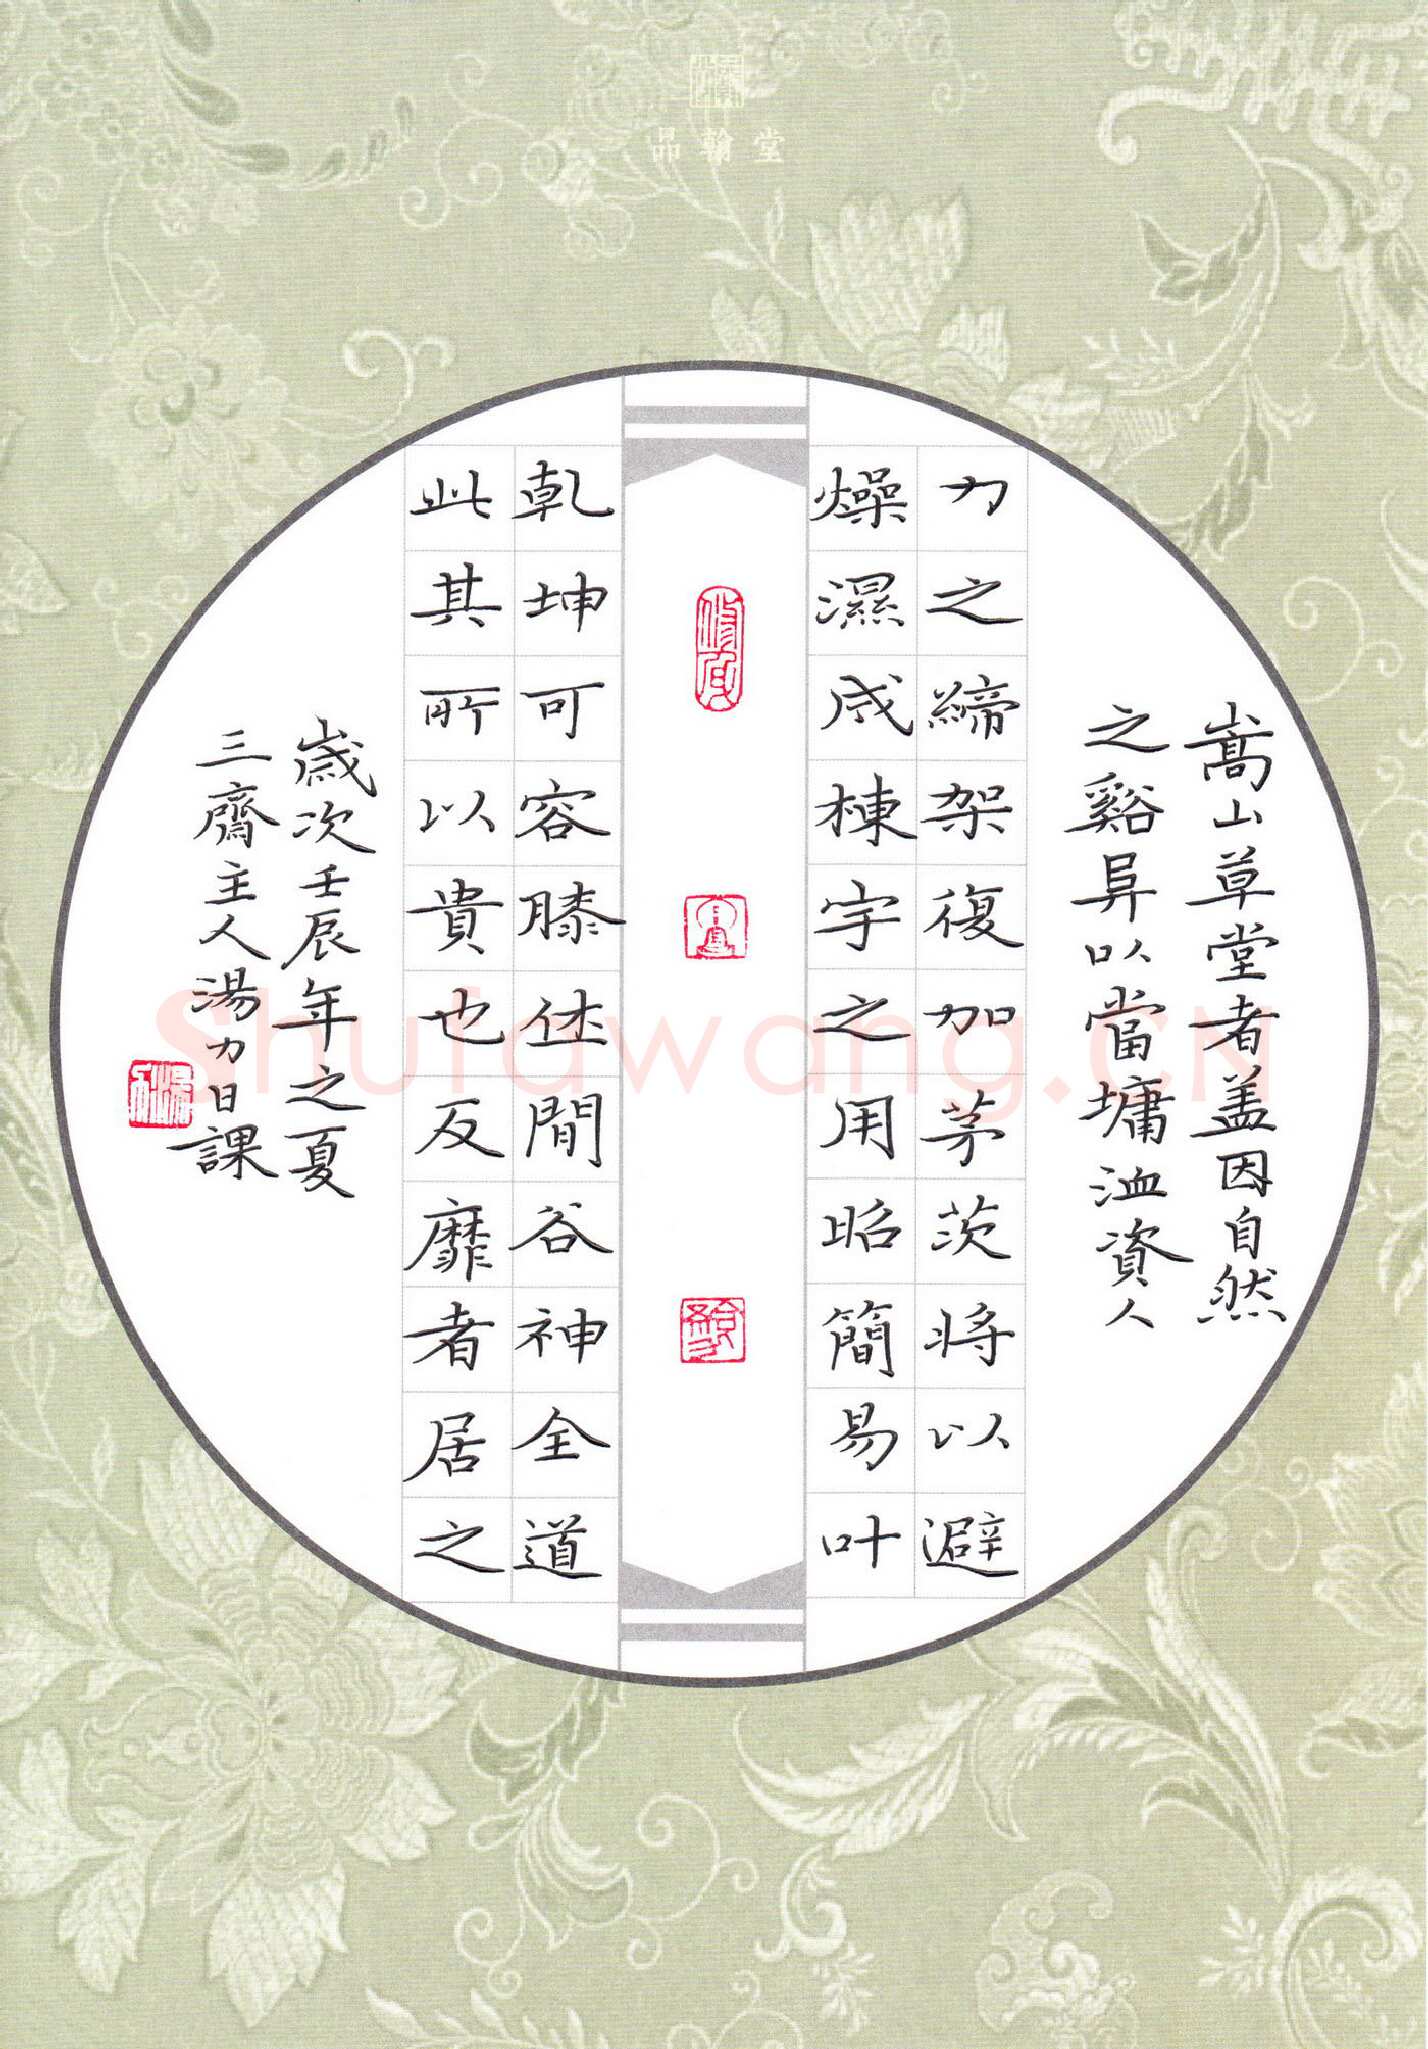 品翰堂
嵩山草堂者盖因自然
之谿阜以當墉洫資人
力之締架復加茅茨將以避
燥濕成棟宇之用昭簡易叶
乾坤可容膝休閒谷神全道
此其所以貴也及靡者居之
歲次壬辰年之夏
三齋主人湯力日課
Shufawang.CN